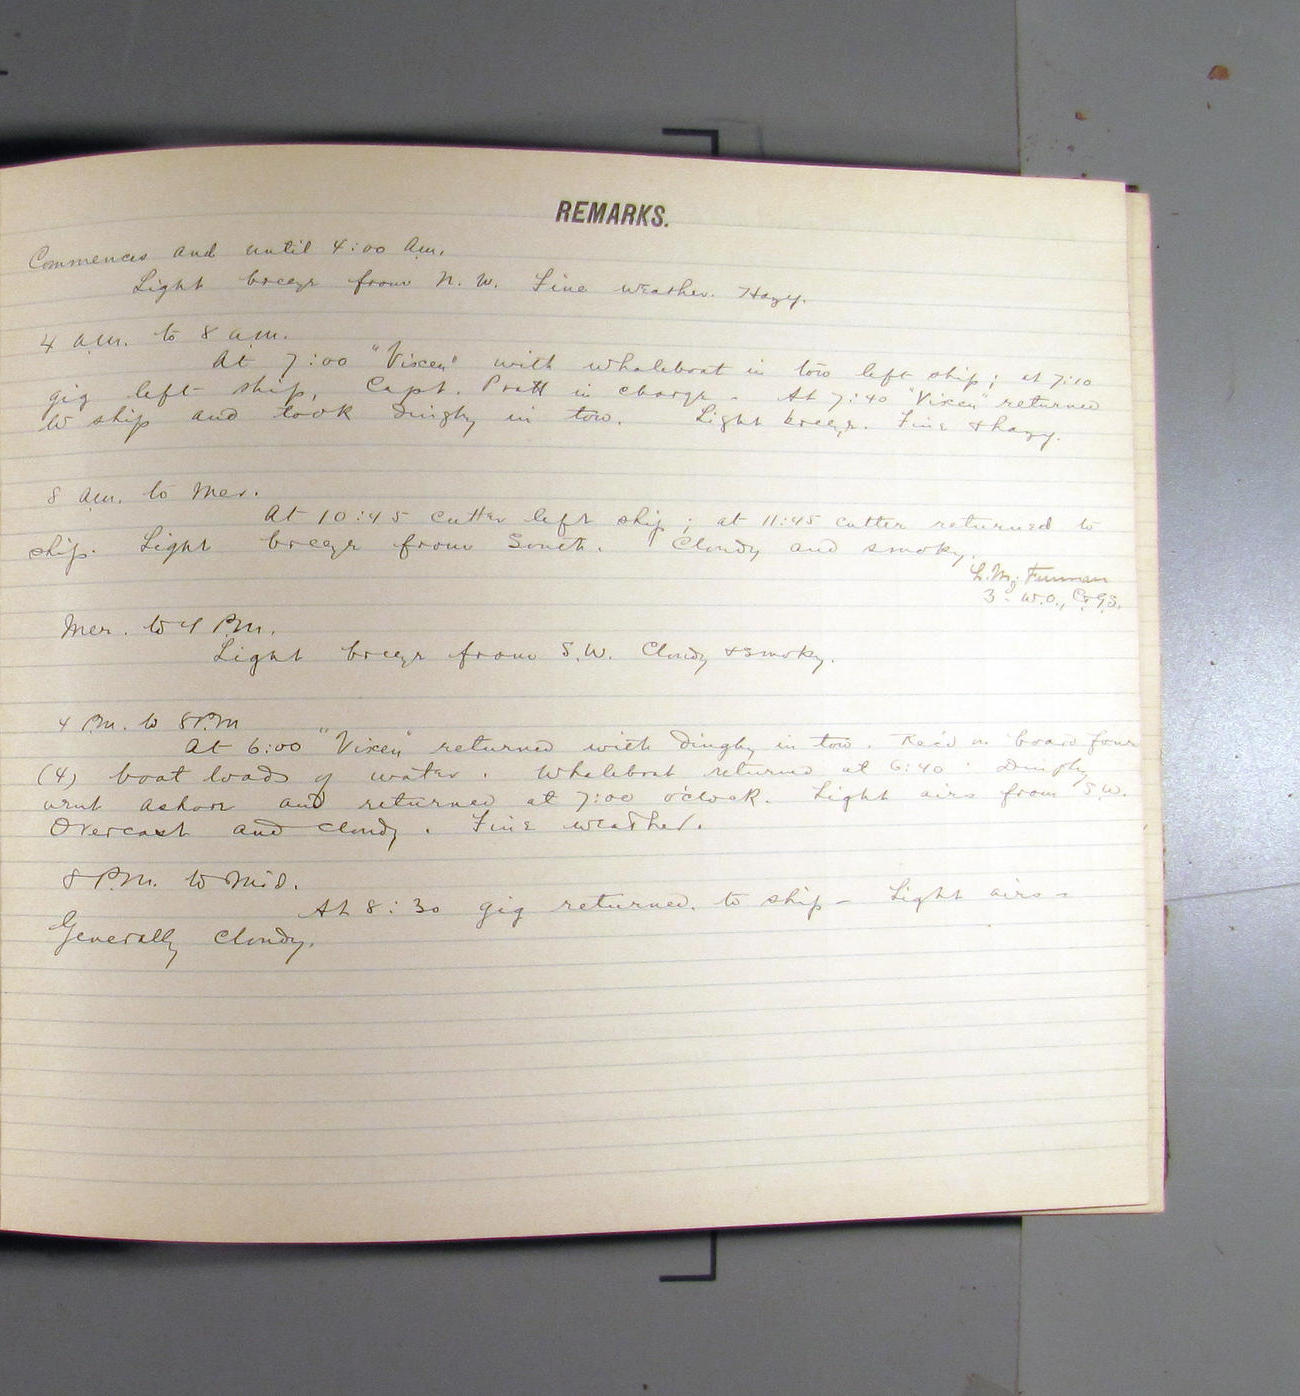 REMARKS.
Commences and until 4:00 a.m.
Light breeze from N.W. Fine weather. Hazy.
4 a.m. to 8 a.m.
At 7:00 "Vixen" with whaleboat in tow left ship; at 7:10
gig left ship, Capt. Pratt in charge. At 7:40 "Vixen" returned
to ship and took dinghy in tow. Light breeze. Fine & hazy.
8 a.m. to Mer.
At 10:45 cutter left ship; at 11:45 cutter returned to
ship. Light breeze from South. Cloudy and smoky.
3 W.O., C.&G.S.
Mer. to 4 P.M.
Light breeze from S.W. Cloudy & smoky.
4 P.M. to 8 P.M
At 6:00 "Vixen" returned with dinghy in tow. Rec'd on board four
(4) boat loads of water. Whaleboat returned at 6:40. Dinghy
went ashore and returned at 7:00 o'clock. Light airs from S.W.
Overcast and cloudy. Fine weather.
8 P.M. to Mid.
At 8:30 gig returned to ship - Light airs -
Generally cloudy.